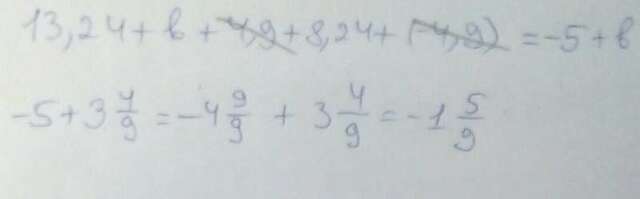 13,24 + b + 4,9 + 8,24 + (-4,9) = -5 + b
-5 + 3 4/9 = -4 9/9 + 3 4/9 = -1 5/9